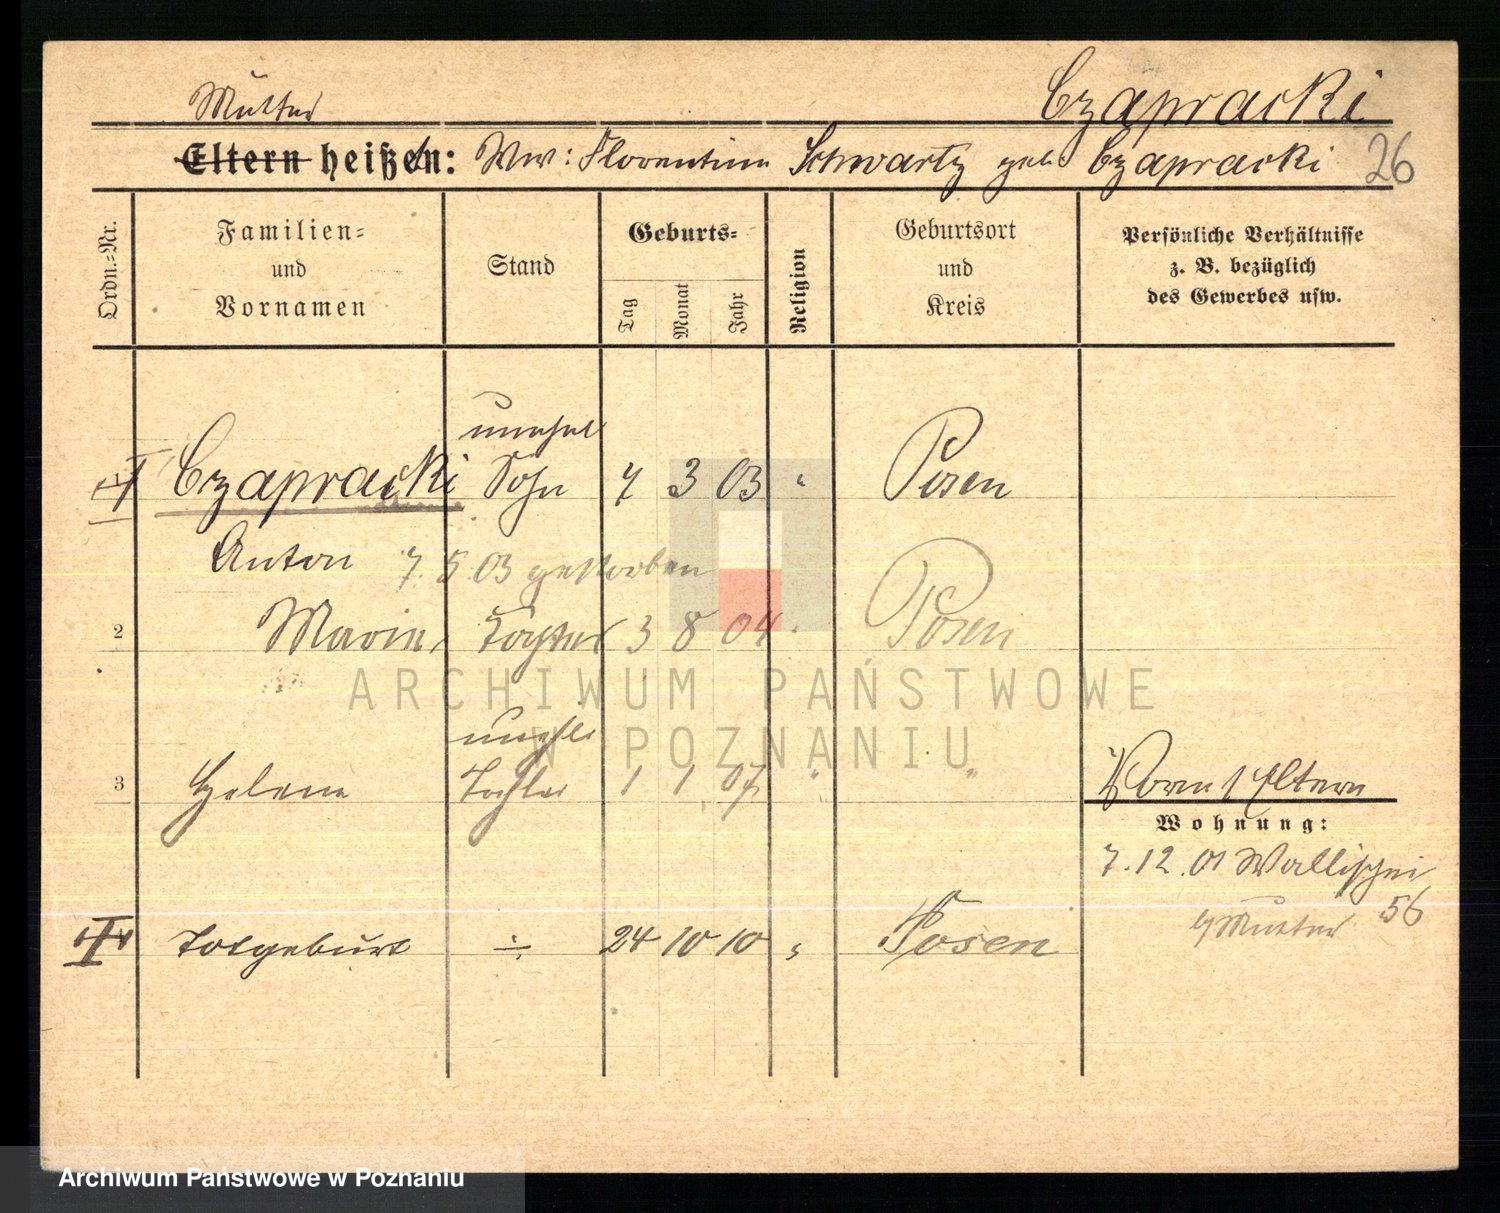 Mutter
Czapracki
Eltern heißen: Ww: Florentine Schwartz geb Czapracki 26
Ordn.-Nr.
Familien-
und
Vornamen
Stand
Geburts-
Tag
Monat
Jahr
Religion
Geburtsort
und
Kreis
Persönliche Verhältnisse
z. B. bezüglich
des Gewerbes usw.
unehel
Czapracki Sohn 7 3 03 " Posen
Anton 7. 5. 03 gestorben
2 Marie Tochter 3 8 04 Posen
ARCHIWUM PAŃSTWOWE
W POZNANIU
unehl
3 Helene Tochter 1 1 07 " "
Eltern
Wohnung:
7.12.01 Wallischei
56
Mutter
Totgeburt ÷ 24 10 10 " Posen
Archiwum Państwowe w Poznaniu